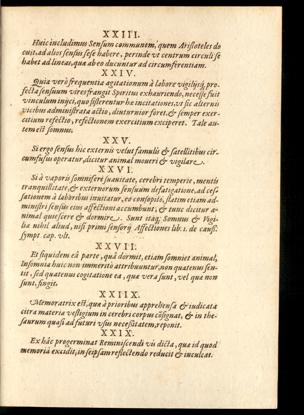 XXIII.
Huic includimus Sensum communem, quem Aristoteles docuit, ad alios sensus sese habere, perinde vt centrum circuli se
habet ad lineas, quæ ab eo ducuntur ad circumferentiam.
XXIV.
Quia verò frequentia agitationum à labore vigilijsq́; profecta sensuum vires frangit Spiritus exhauriendo, necesse fuit
vinculum injici, quo sisterentur hæ incitationes, vt sic alternis
vicibus administrata actio, diuturnior foret, & semper exercitium refectio, refectionem exercitium exciperet. Tale autem est somnus.
XXV.
Si ergo sensus hic externis velut famulis & satellitibus circumfusus operatur dicitur animal moveri & vigilare.
XXVI.
Si à vaporis somniferi suauitate, cerebri temperie, mentis
tranquillitate, & externorum sensuum defatigatione, ad cessationem à laboribus inuitatur, eo consopito, statim etiam administri sensus eius affectioni accumbunt, & tunc dicitur animal quiescere & dormire. Sunt itaq́; Somnus & Vigilia nihil aliud, nisi primi sensorij Affectiones lib: 1. de caus.
sympt. cap. vlt.
XXVII.
Et siquidem ea parte, qua dormit, etiam somniet animal,
Insomnia huic non immeritò attribuuntur, non quatenus sentit, sed quatenus cogitatione ea, quæ vera sunt, vel quæ non
sunt, fingit.
XXIIX.
Memoratrix est, quæ à prioribus apprehensa & iudicata
citra materiæ vestigium in cerebri corpus cōsignat, & in thesaurum quasi ad futuri vsus necessitatem, reponit.
XXIX.
Ex hac progerminat Reminiscendi vis dicta, quæ id quod
memoriâ excidit, in seipsam reflectendo reducit & inculcat.